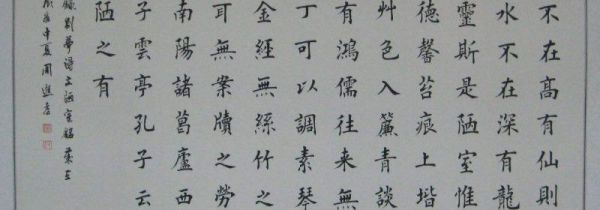 不在高有仙則
水不在深有龍
靈斯是陋室惟
德馨苔痕上堦
艸色入簾青談
有鴻儒往来無
丁可以調素琴
金經無絲竹之
耳無案牘之勞
南陽諸葛廬西
子雲亭孔子云
陋之有
錄劉夢得陋室銘歲在
中夏周